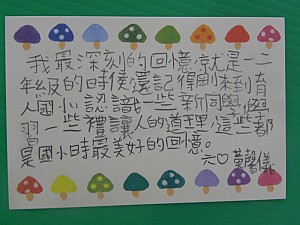 我最深刻的回憶就是一二
年級的時侯還記得剛來到育
人國小認識一些新同學
習一些禮讓人的道理這些都
是國小時最美好的回憶。
六♡